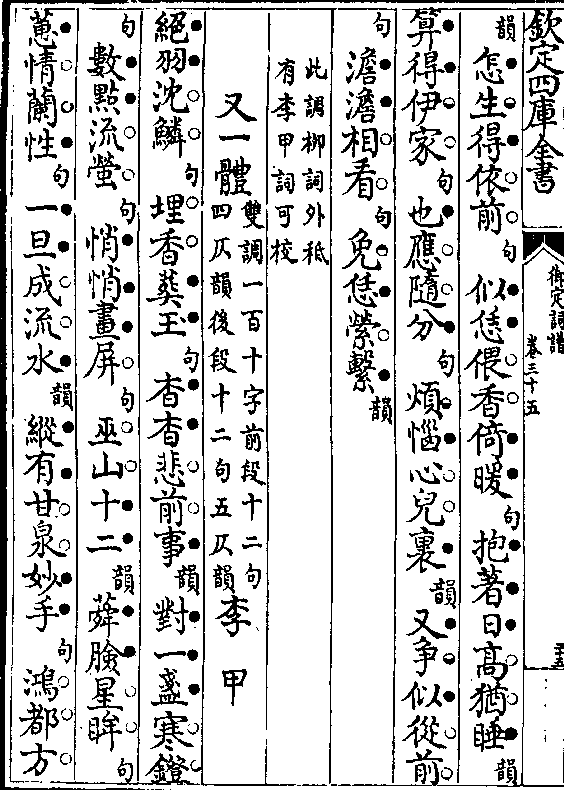 欽定四庫全書
御定詞譜
卷三十五
韻怎生得依前句似恁偎香倚暖句抱著日高猶睡韻
算得伊家句也應隨分句煩惱心兒裏韻又爭似從前
句澹澹相看句免恁縈繫韻
此調柳詞外秪
有李甲詞可校
又一體雙調一百十字前段十二句
四仄韻後段十二句五仄韻李甲
絕羽沈鱗句埋香葬玉句杳杳悲前事韻對一盞寒鐙
句數點流螢句悄悄畫屏句巫山十二韻蕣臉星眸句
蕙情蘭性句一旦成流水韻縱有甘泉妙手句鴻都方